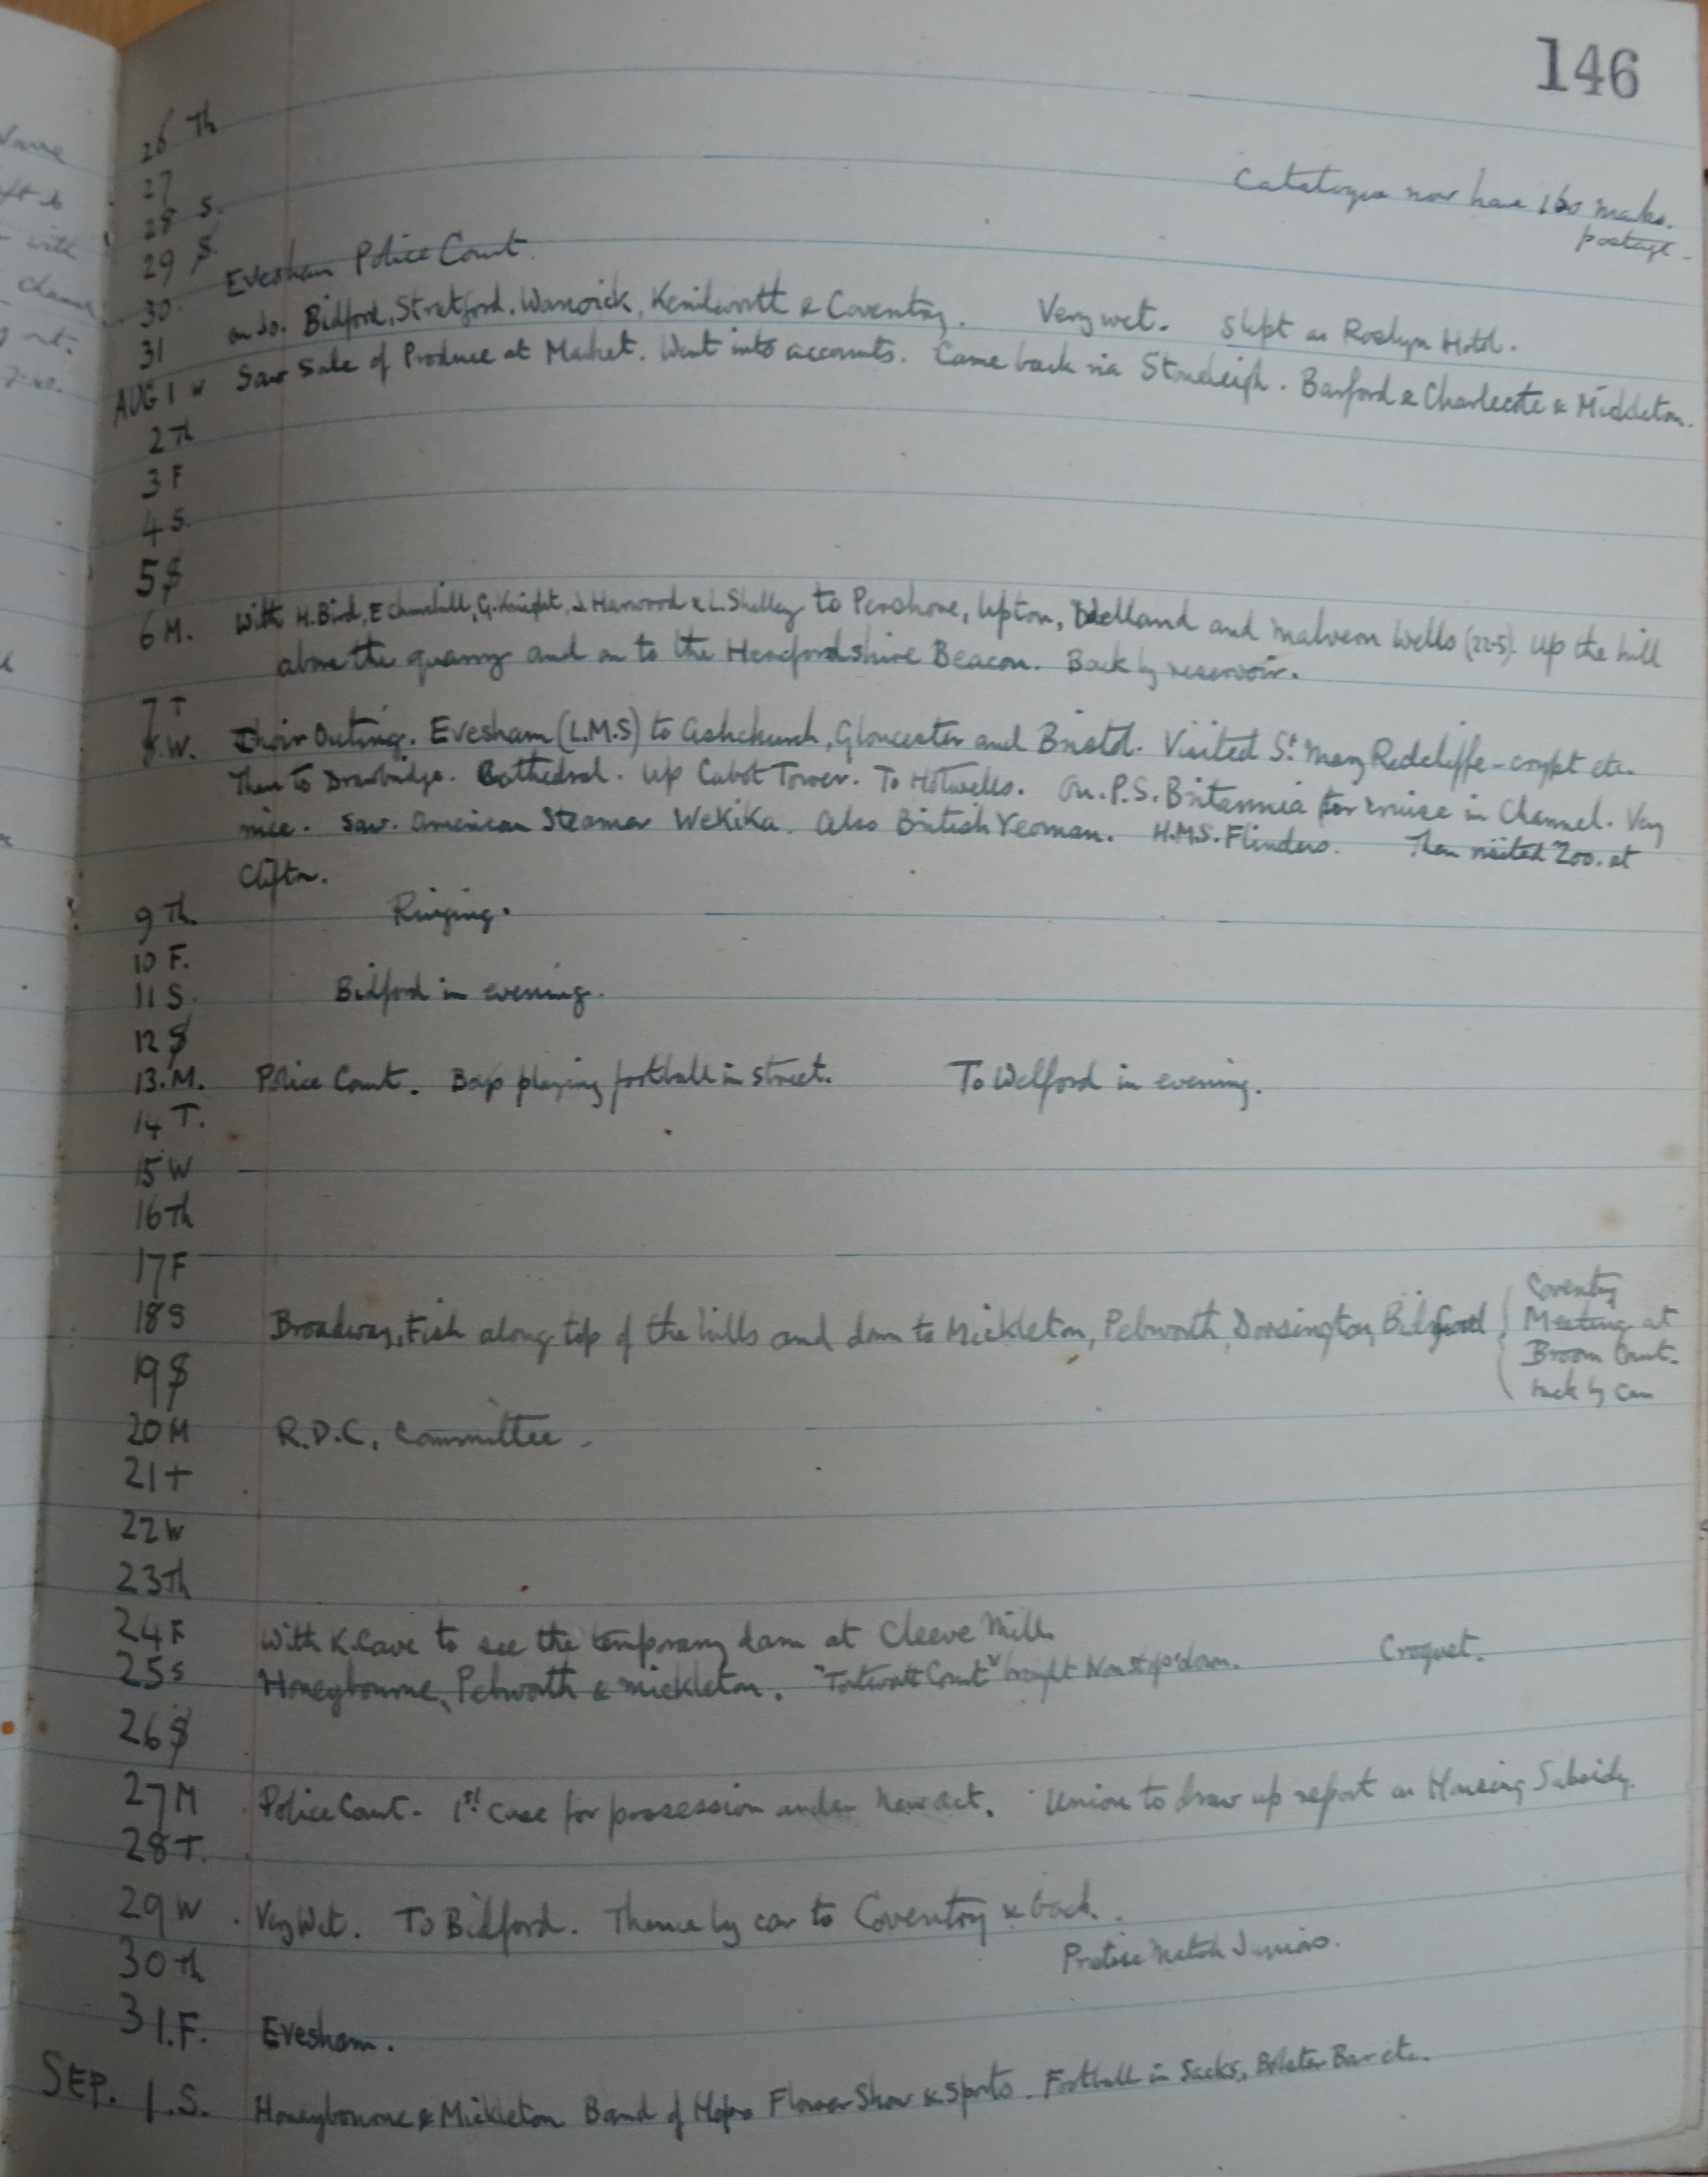 146
26 Th
27
28 S.
Catalogue now have 160 marks.
29 S
postage.
30 Evesham Police Court.
31 on to. Bidford, Stratford, Warwick, Kenilworth & Coventry. Very wet. Slept at Roslyn Hotel.
AUG 1 W Saw Sale of Produce at Market. Went into accounts. Came back via Stoneleigh. Barford & Charlecote & Mickleton.
2 Th
3 F
4 S.
5 S
6 M. With H. Bird, E Churchill, G. Knight, J Harwood & L. Shelley to Pershore, Upton, Welland and Malvern Wells (22.5). Up the hill
above the quarry and on to the Herefordshire Beacon. Back by reservoir.
7 T
8.W. Choir Outing. Evesham (L.M.S) to Ashchurch, Gloucester and Bristol. Visited St Mary Redcliffe - crypt etc.
Then to Drawbridge. Cathedral. Up Cabot Tower. To Hotwells. On. P.S. Britannia for cruise in Channel. Very
nice. Saw. American Steamer Wekika. Also British Yeoman. H.M.S. Flinders. Then visited Zoo. at
Clifton.
9 Th. Ringing.
10 F.
11 S. Bidford in evening.
12 S
13. M. Police Court. Boys playing football in street. To Welford in evening.
14 T.
15 W
16 Th
17 F
18 S Broadway, Fish along top of the hills and down to Mickleton, Pebworth, Dorsington, Bidford
Coventry
Meeting at
Broom Court.
back by car
19 S
20 M R.D.C. Committee.
21 T
22 W
23 Th
24 F With K. Cave to see the temporary dam at Cleeve Mill.
25 S Honeybourne, Pebworth & Mickleton. brought Croquet.
26 S
27 M Police Court. 1st case for possession under new act. Union to draw up report on Housing Subsidy.
28 T.
29 W Very Wet. To Bidford. Thence by car to Coventry & back.
30 Th Pratice Match Juniors.
31. F. Evesham.
SEP. 1. S. Honeybourne & Mickleton Band of Hope Flower Show & Sports. Football in Sacks, Bolster Bar etc.